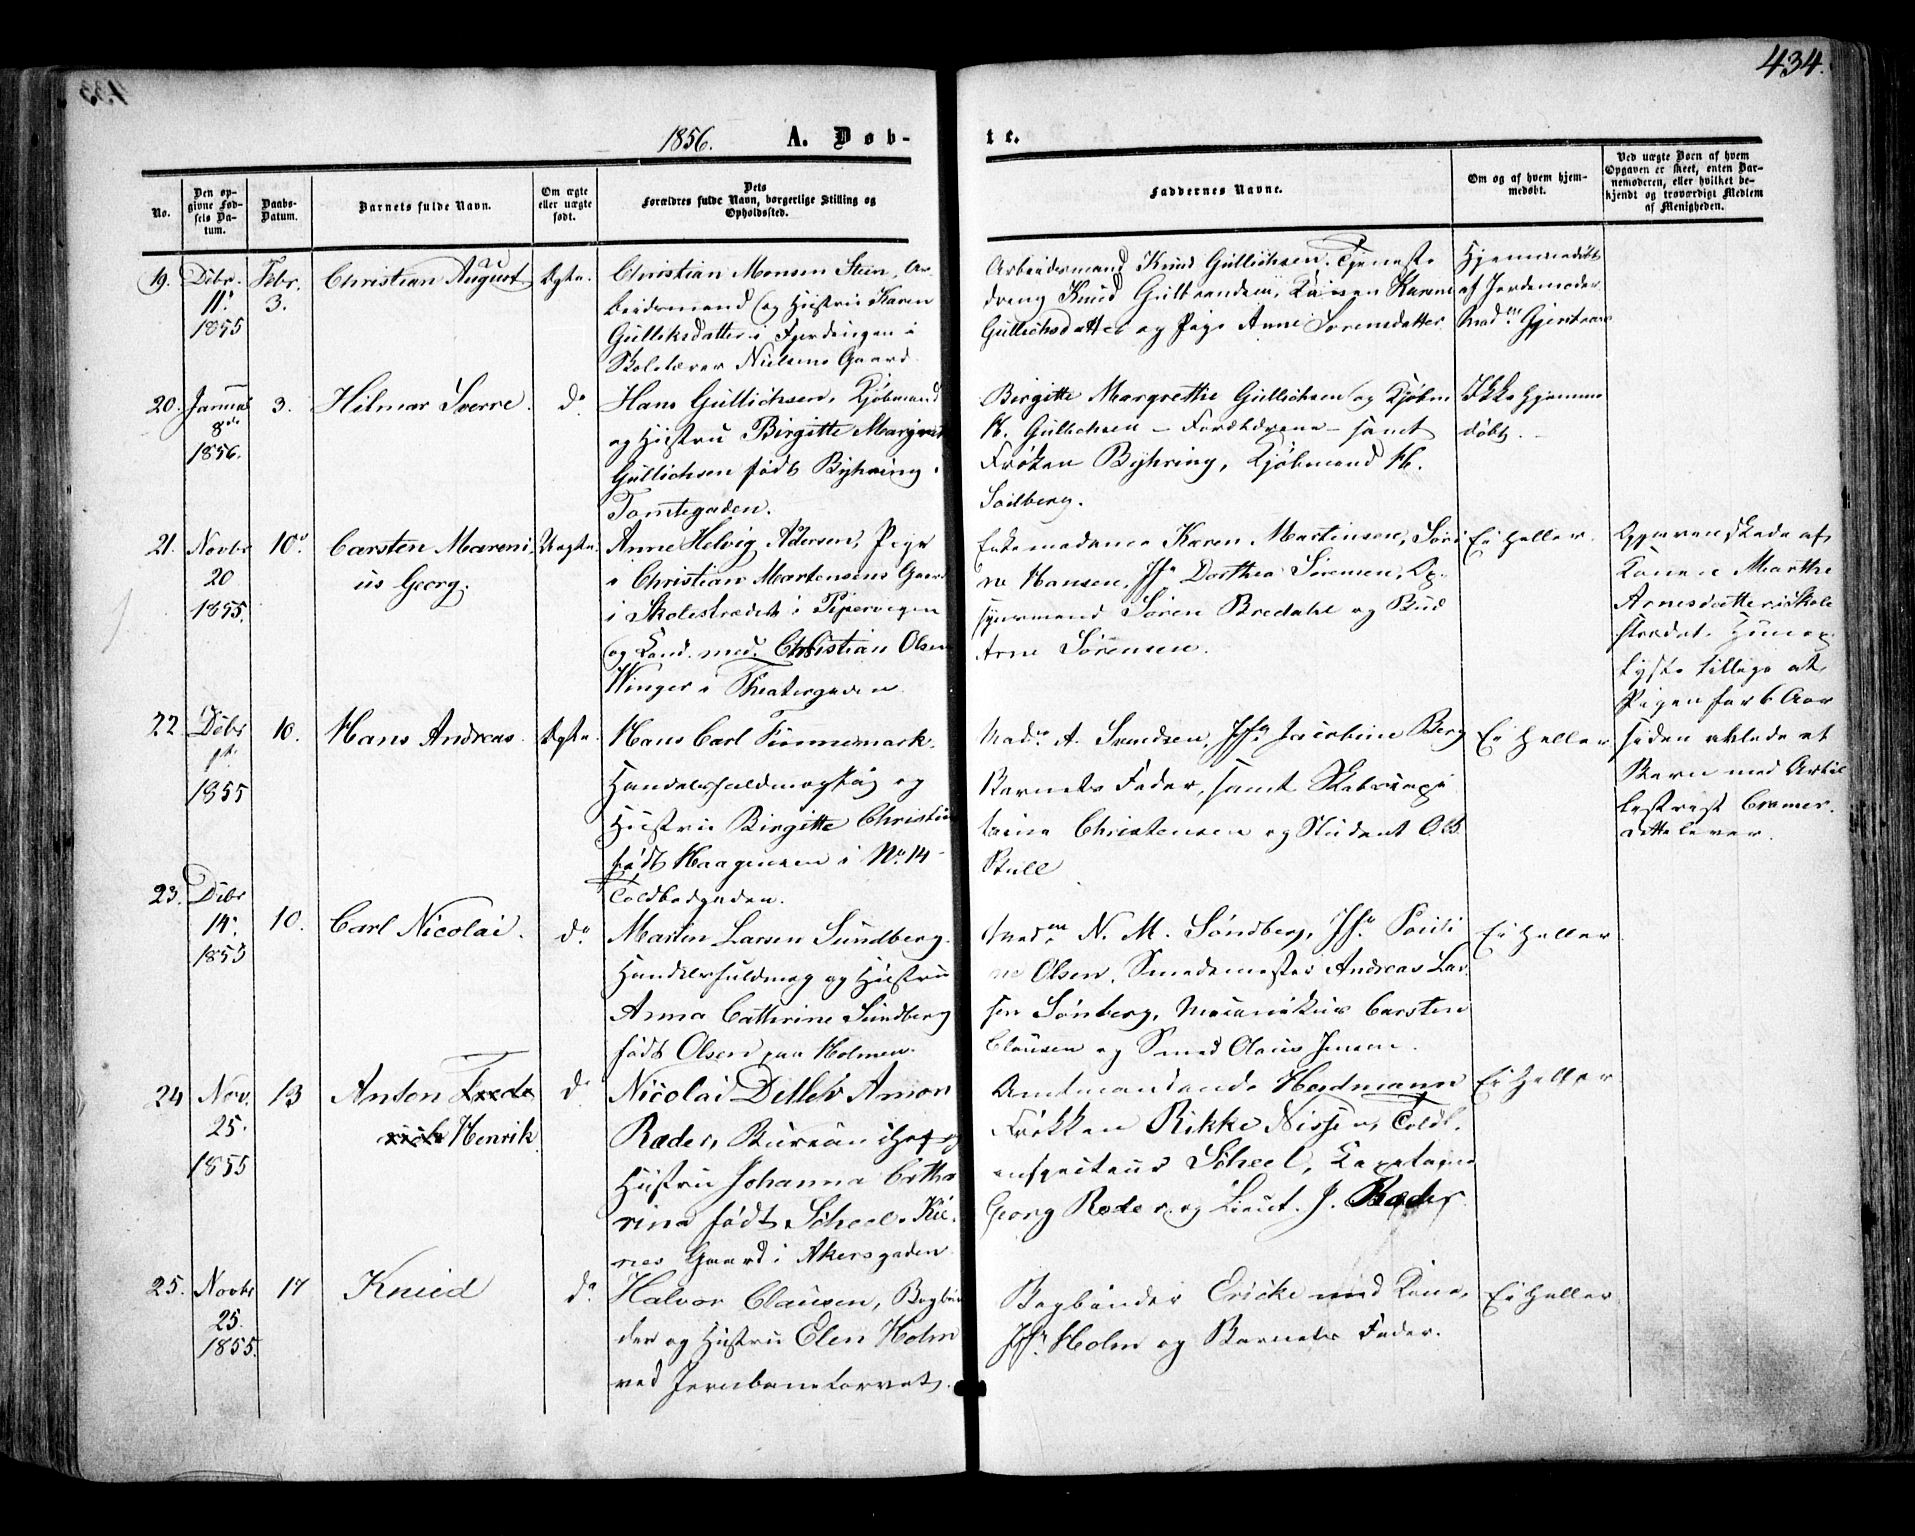 434.
1856. A. Døb-
te.
No.
Den op-
givne Fød-
sels Da-
tum.
Daabs-
Datum.
Barnets fulde Navn.
Om ægte
eller uægte
født.
Dets
Forældres fulde Navn, borgerlige Stilling og
Opholdssted.
Faddernes Navne.
Om og af hvem hjem-
medøbt.
Ved uægte Børn af hvem
Opgaven er skeet, enten Bar-
nemoderen, eller hvilket be-
kjendt og troværdigt Medlem
af Menigheden.
19.
Debr.
11.
1855
Febr.
3.
Christian August
Ægte.
Christian Monsen Steen, Ar-
beidsmand og Hustru Karen
Gulliksdatter i Fjerdingen i
Skolelærer Nielsens Gaard.
Arbeidsmand Knud Gullichsen. Tjeneste
dreng Knud Gulbrandsen, Konen Karen
Gullichsdatter og Pige Anne Sørensdatter
Hjemmedøbt
af Jordemoder
Mad.m
20.
Januar
8de
1856.
3.
Hilmar Sverre.
do
Hans Gullichsen, Kjøbmand
og Hustru Birgitte Margrete
Gullichsen født Byhring i
Tomtegaden.
Birgitte Margrethe Gullichsen og Kjøbm
H. Gullichsen - Forældrene - samt
Frøken Byhring, Kjøbmand H.
Soelberg.
Ikke hjemme
døbt.
21.
Novbr
20
1855.
10.
Carsten Mareni
us Georg.
Uægte.
Anne Helvig Andersen, Pige
i Christian Martensens Gaard
i Skolestrædet i Pipervigen
og Cand. med. Christian Olsen
Winger i Theatergaden.
Enkemadame Karen Martinsen, Seri
ne Hansen, Jfr Dorthea Sørensen, Op-
synsmand Søren Bredahl og Bud
Arne Sørensen.
Ei heller.
Opgaven skede af
Konen Marthe
Arnesdatter i Skole
strædet. Hun op
lyste tillige at
Pigen for 6 Aar
siden avlede et
Barn med Artil
lerist Cramer.
Dette lever.
22
Debr
1855
10.
Hans Andreas.
Ægte.
Hans Carl Finnemark,
Handelsfuldmægtig og
Hustru Birgitte Christine
født Haagensen i No. 14
Toldbodgaden.
Mad. A. Svendsen, Jfr. Jacobine Berg
Barnets Fader, samt Skibscapi
taine Christensen og Student O. B.
Bull
Ei heller
23.
Debr
14.
1853
10.
Carl Nicolai.
do
Marten Larsen Sundberg.
Handelsfuldmæg og Hustru
Anna Cathrine Sundberg
født Olsen paa Holmen.
Mad.m N. M. Søndberg, Jfr. Pauli
ne Olsen, Smedemester Andreas Lar
sen Sønberg, Mecanikus Carsten
Clausen og Smed Olaus Jensen.
Ei heller
24
Nov.
25.
1855
13
Anton Frede
rich Henrik
do
Nicolai Detlev Amon
Ræder, Bureauchef og
Hustru Johanna Catha
rina født Scheel. Kie-
nes Gaard i Akersgaden
Amtmandinde Herdmann
Frøkken Rikke Nissen, Toldl.
inspecteur Scheel, Kapetaine
Georg Ræder og Lieut. J. Ræder
Ei heller
25.
Novbr
25.
1855.
17
Knud
do
Halvor Clausen, Bogbin
der og Hustru Elen Holm
ved Jernbanetorvet.
Bogbinder Ericke med Kone,
Jfr. Holm og Barnets Fader.
Ei heller